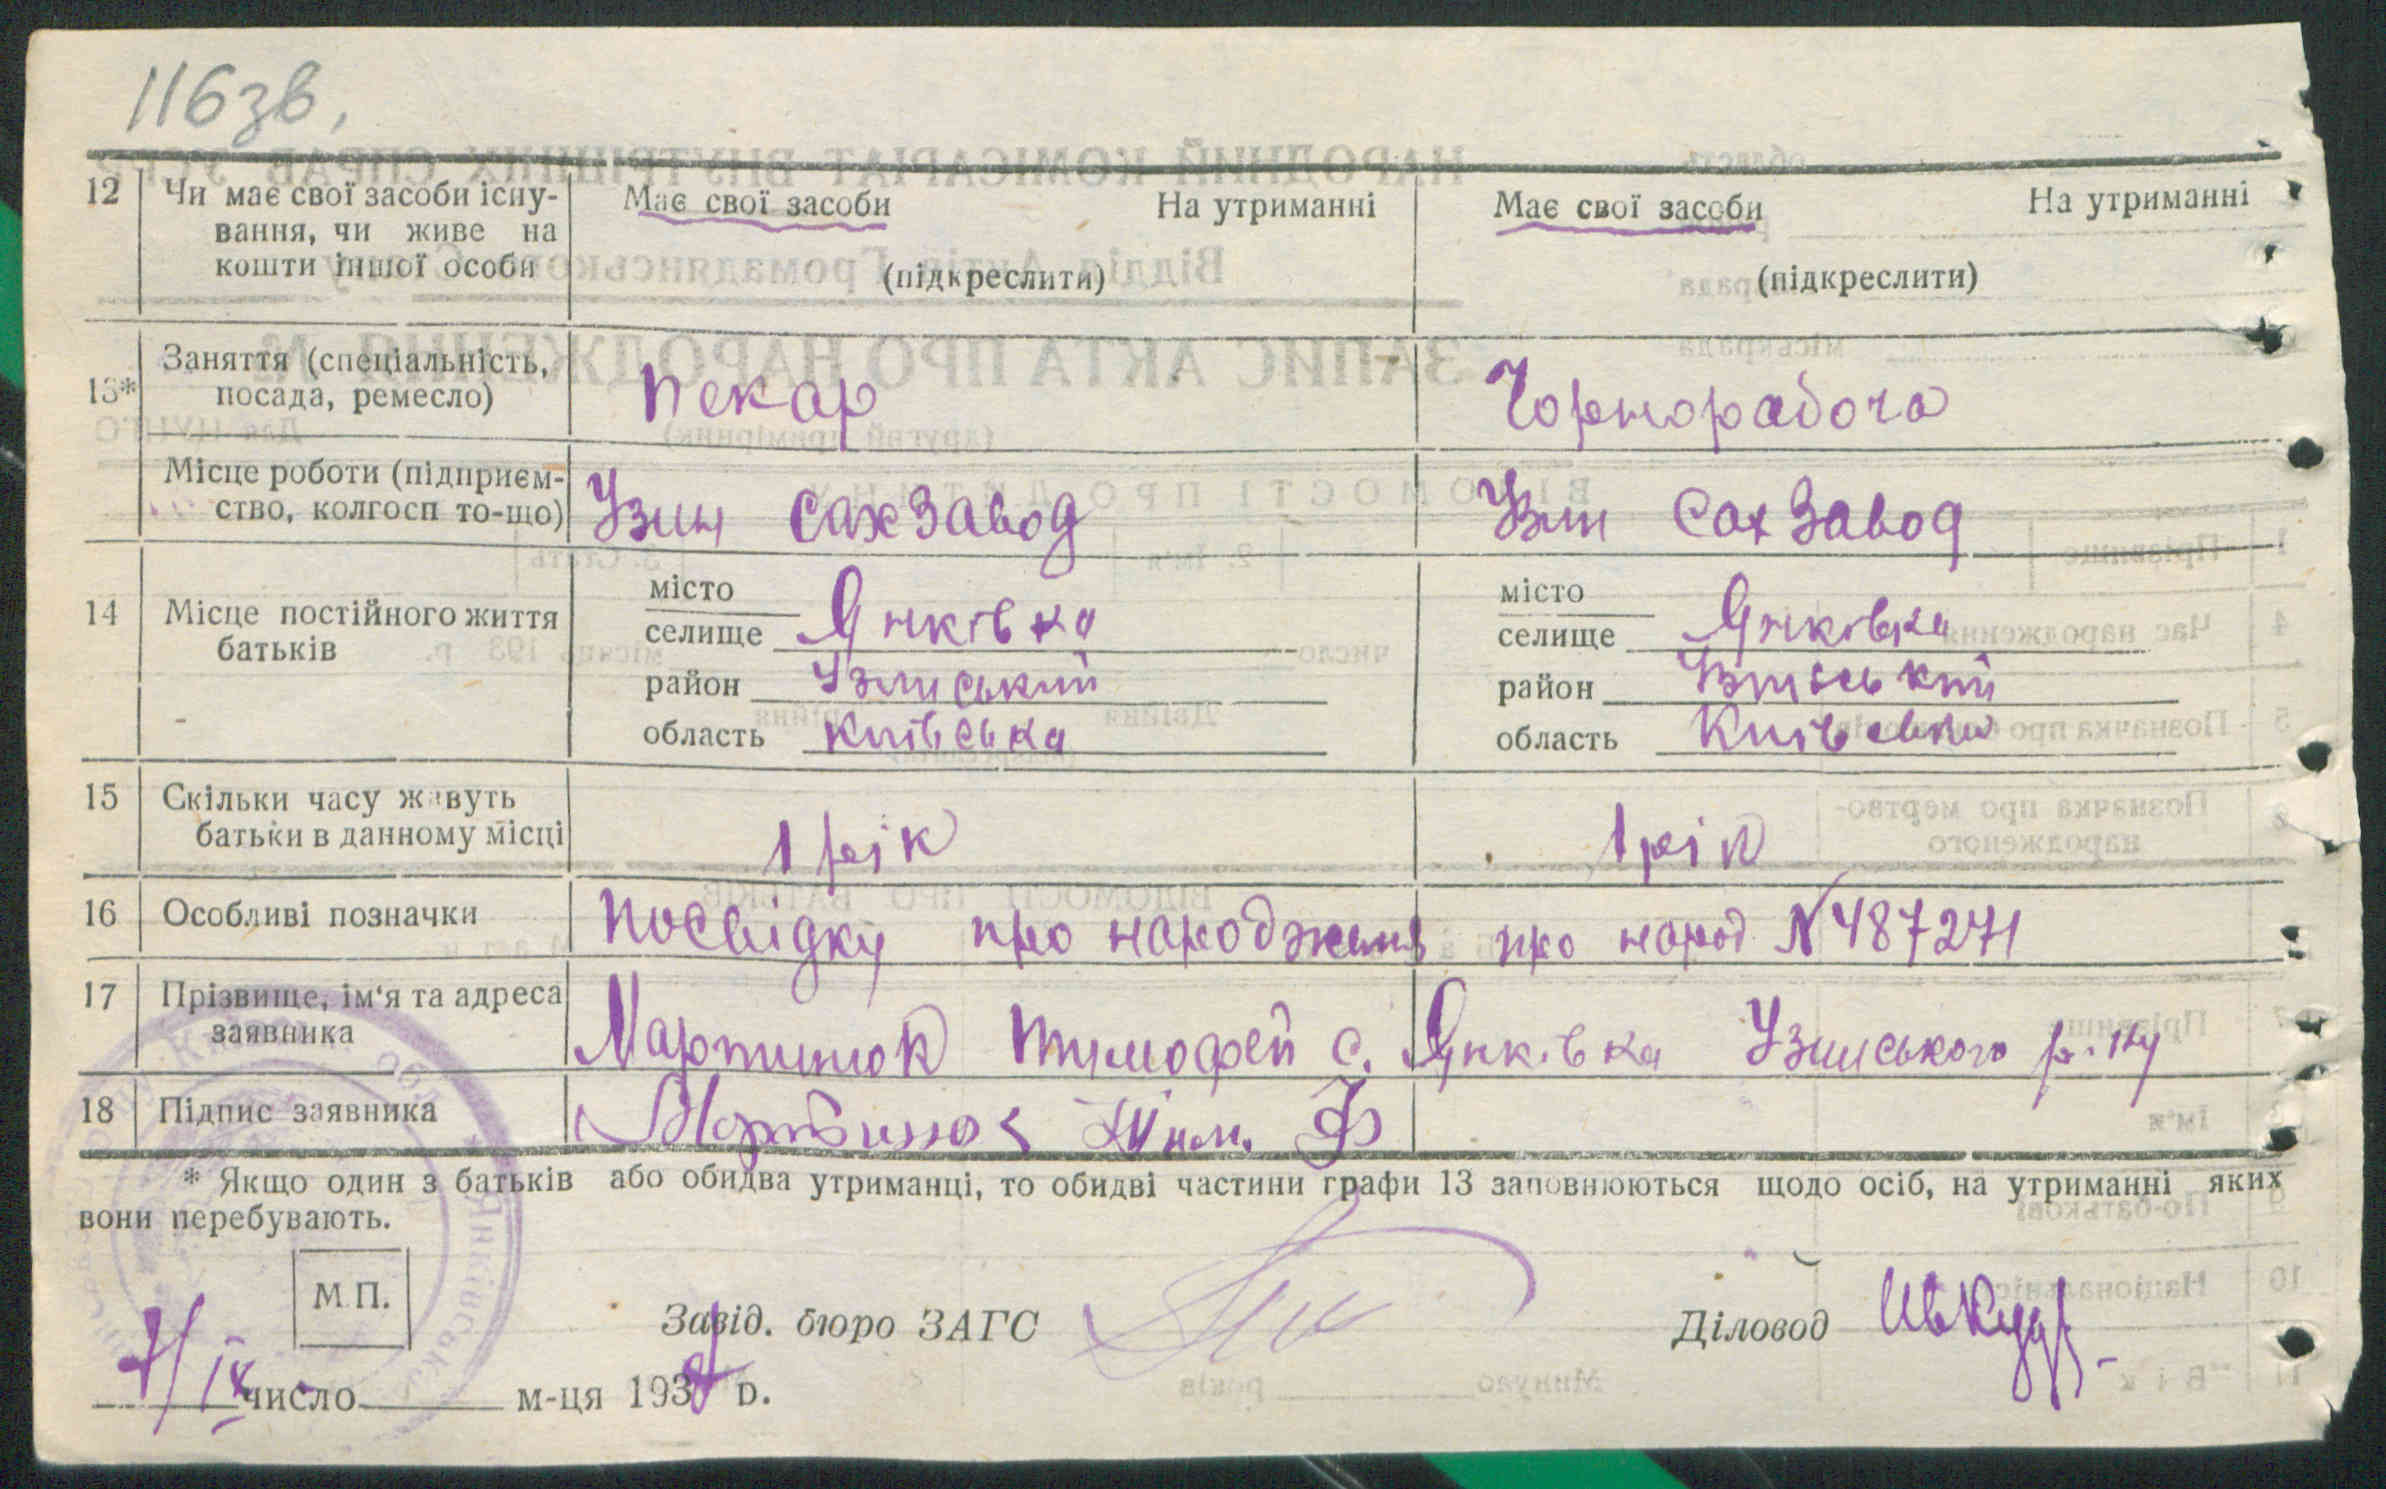 116зв.
12 Чи має свої засоби існування, чи живе на кошти іншої особи Має свої засоби На утриманні (підкреслити) Має свої засоби На утриманні (підкреслити)
13* Заняття (спеціальність, посада, ремесло) Пекар Чорнорабоча
Місце роботи (підприємство, колгосп то-що) Узин СахЗавод Узин СахЗавод
14 Місце постійного життя батьків
місто
селище Янківка
район Узинський
область Київська
місто
селище Янківка
район Узинський
область Київська
15 Скільки часу живуть батьки в данному місці 1 рік 1 рік
16 Особливі позначки Посвідку про народження про народ N 487271
17 Прізвище, ім'я та адреса заявника Мартинюк Тимофей с. Янківка Узинського р-ну
18 Підпис заявника Мартинюк Тим. Ф
* Якщо один з батьків або обидва утриманці, то обидві частини графи 13 заповнюються щодо осіб, на утриманні яких
вони перебувають.
М.П.
Завід. бюро ЗАГС Діловод
7/IX число м-ця 193 р.